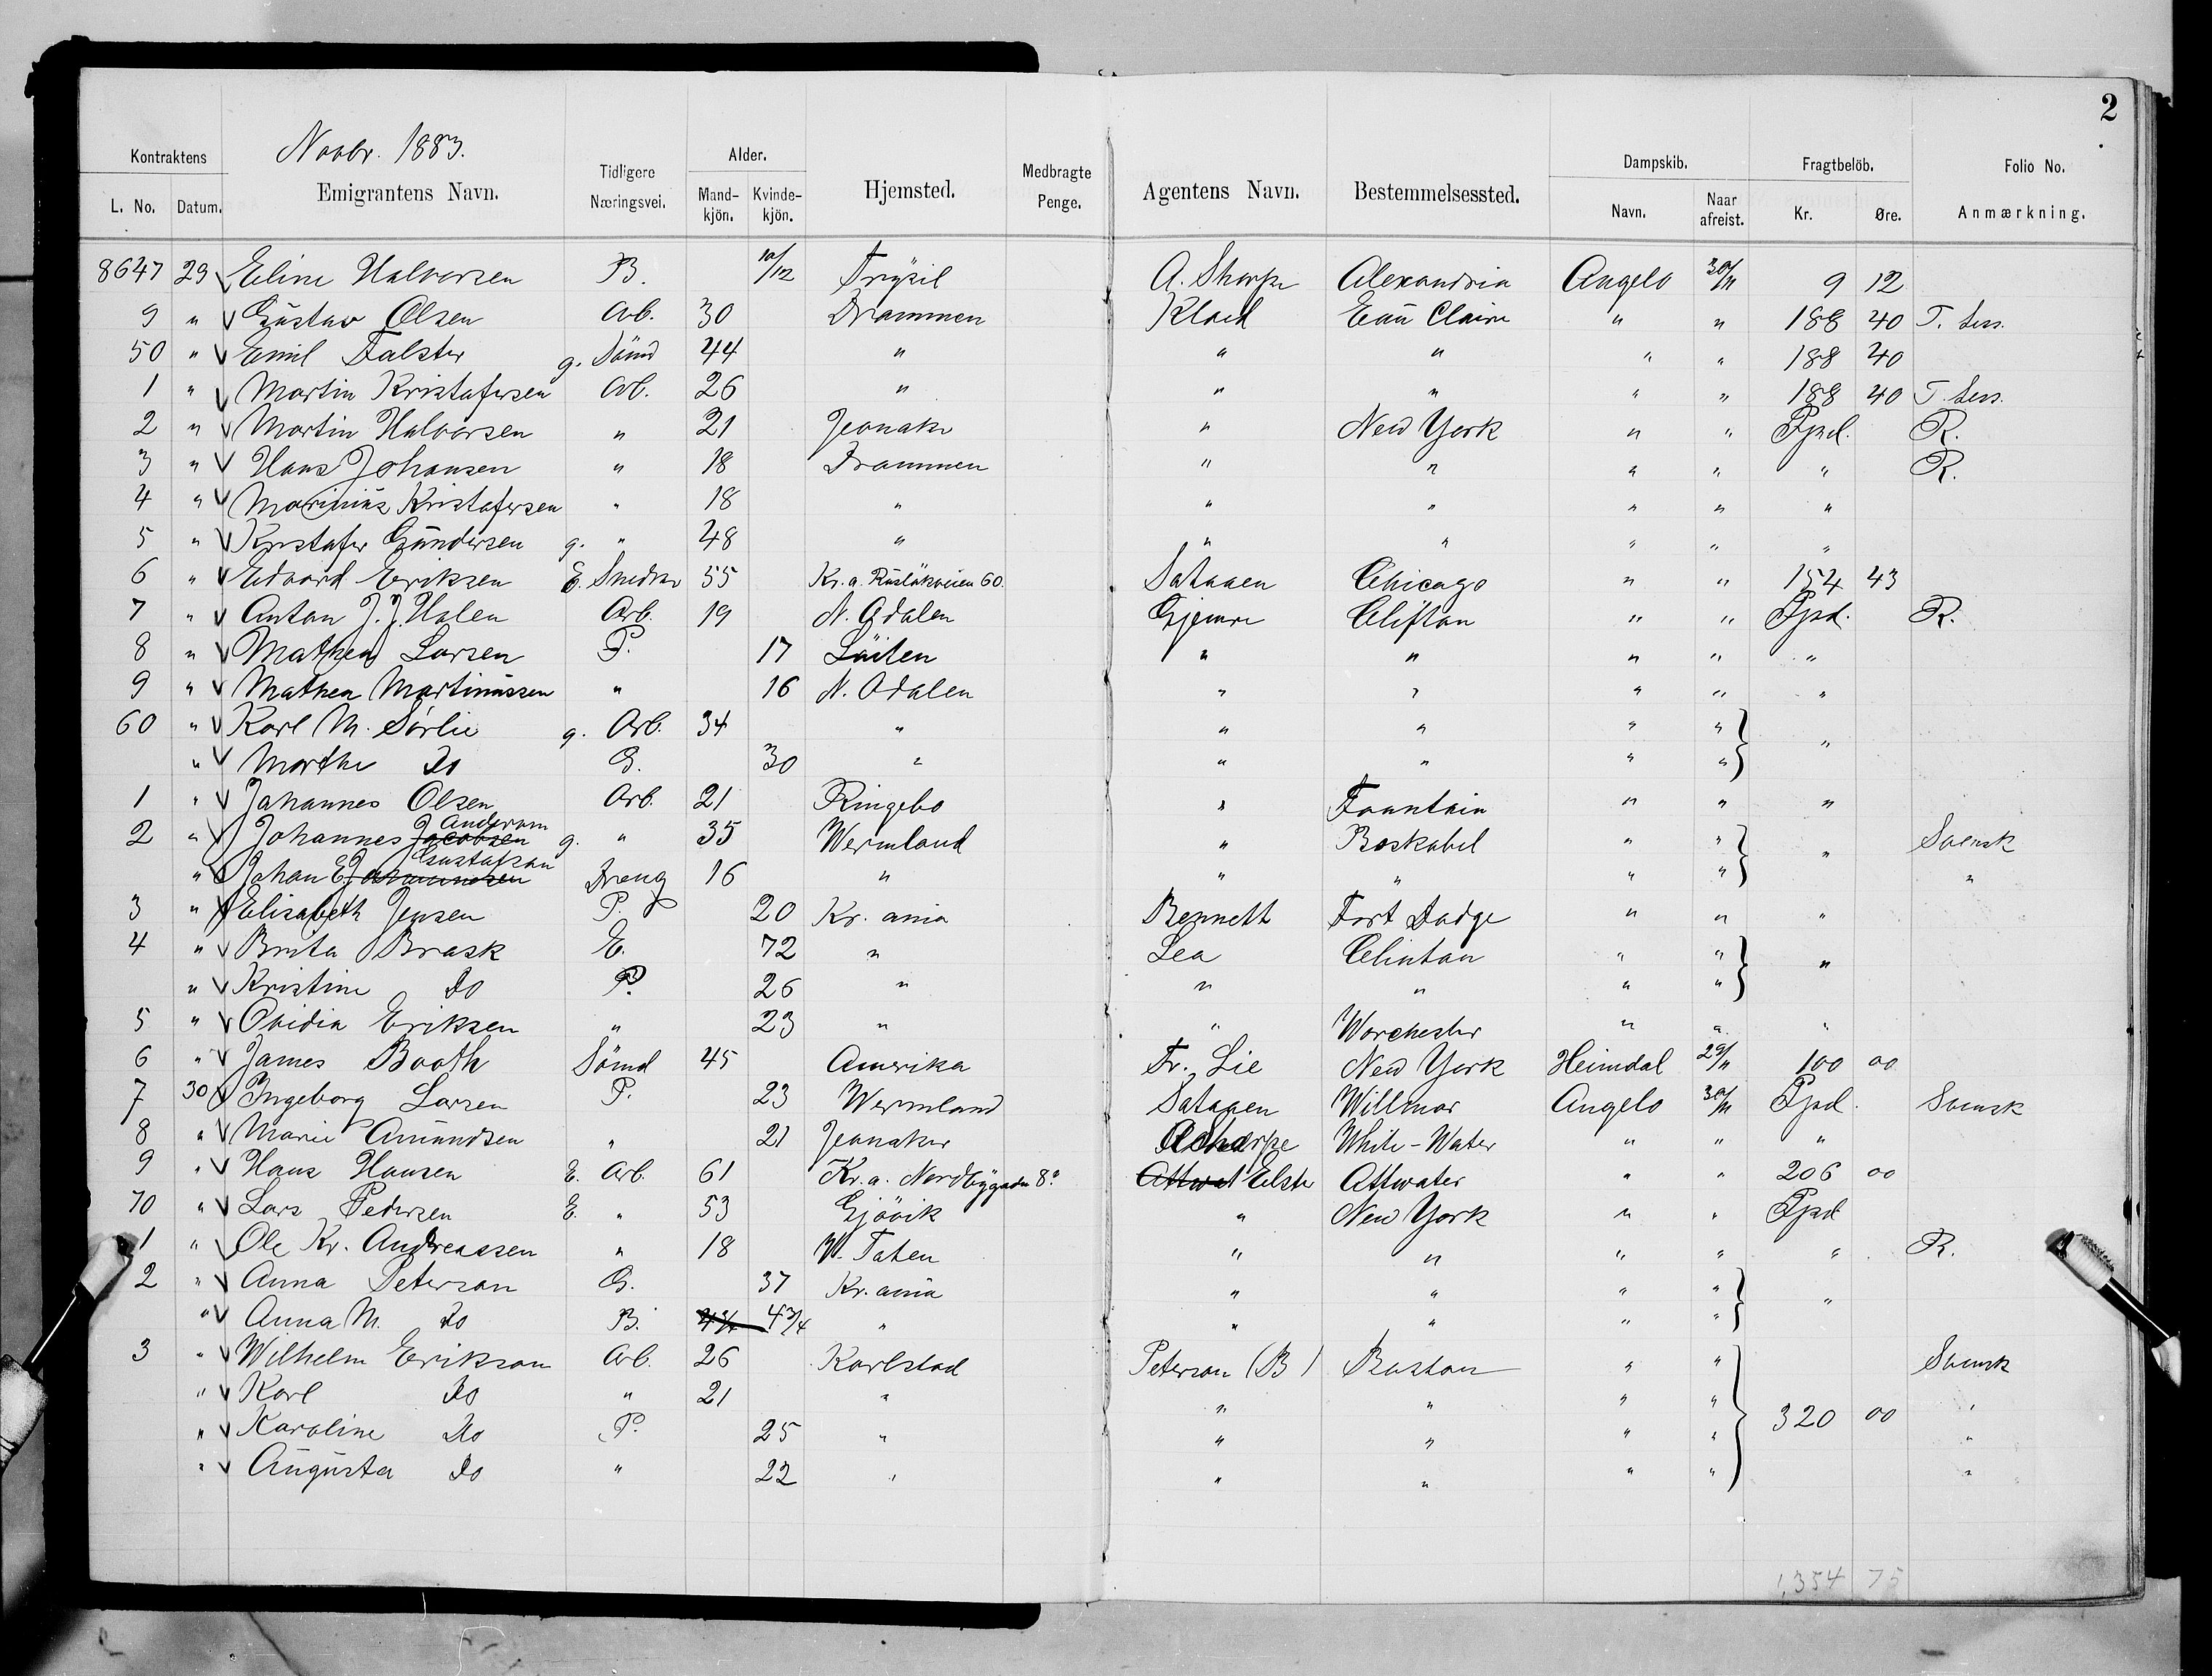 2
Novbr. 1883.
Kontraktens L. No. Datum. Emigrantens Navn. Tidligere Næringsvei. Alder. Mand-kjön. Kvinde-kjön. Hjemsted. Medbragte Penge. Agentens Navn. Bestemmelsessted. Dampskib. Navn. Naar afreist. Fragtbelöb. Kr. Øre. Folio No. Anmærkning.
8647 29 Eline Halvorsen B. 10/12 Trysil A. Sharpe Alexandria Angelo 30/11 9 12
9 " Gustav Olsen Arb. 30 Drammen Kloed Eau Claire " " 188 40 T. Sess.
50 " Emil Falster g. Sömd 44 " " " " " 188 40
1 " Martin Kristofersen Arb. 26 " " " " " 188 40 T. Sess.
2 " Martin Halvorsen " 21 Jevnaker " New York " " Fpsd. R.
3 " Hans Johansen " 18 Drammen " " " " " R.
4 " Marinius Kristofersen " 18 " " " " " "
5 " Kristofer Gundersen g. " 48 " " " " " "
6 " Edvard Eriksen E. Snedker 55 Kr.a. Rusløkveien 60. Satagen Chicago " " 154 43
7 " Anton J. J. Halen Arb. 19 N. Odalen Gjemre Clifton " " Fpsd. R.
8 " Mathea Larsen P. 17 Löiten " " " " "
9 " Mathea Martinussen " 16 N. Odalen " " " " "
60 " Karl M. Sörlie g. Arb. 34 " " " " " "
" Marthe Do G. 30 " " " " "
1 " Johannes Olsen Arb. 21 Ringebo " Fountain " " "
2 " Johannes Jacobsen Anderson g. " 35 Wermland " Boskobel " " " Svensk
" Johan E. Gustafson Dreng 16 " " " " " "
3 " Elisabeth Jensen P. 20 Kr. ania Bennett Fort Dodge " " "
4 " Brita Brask E. 72 " Lea Clinton " " "
" Kristine Do P. 26 " " " " "
5 " Ovidia Eriksen " 23 " " Worchester " " "
6 " James Booth Sömd 45 Amerika Fr. Lie New York Heimdal 29/11 100 00
7 30 Ingeborg Larsen P. 23 Wermland Satagen Willmar Angelo 30/11 Fpsd. Svensk
8 " Marie Amundsen " 21 Jevnaker A Scharpe White-Water " " "
9 " Hans Hansen E. Arb. 61 Kr.a. Nordbygaden 8a Attwat Elster Attwater " " 206 00
70 " Lars Pedersen E. " 53 Gjövik " New York " " Fpsd
1 " Ole Kr. Andreassen " 18 V. Toten " " " " " R.
2 " Anna Peterson G. 37 Kr. ania " " " " "
" Anna M. Do B. 4 3/4 4 3/4 " " " " "
3 " Wilhelm Erikson Arb. 26 Karlstad Peterson (B) Boston " " Svensk
" Karl Do " 21 " " " " " 320 00 "
" Karoline Do P. 25 " " " " " "
" Augusta Do " 22 " " " " " "
1,354 75